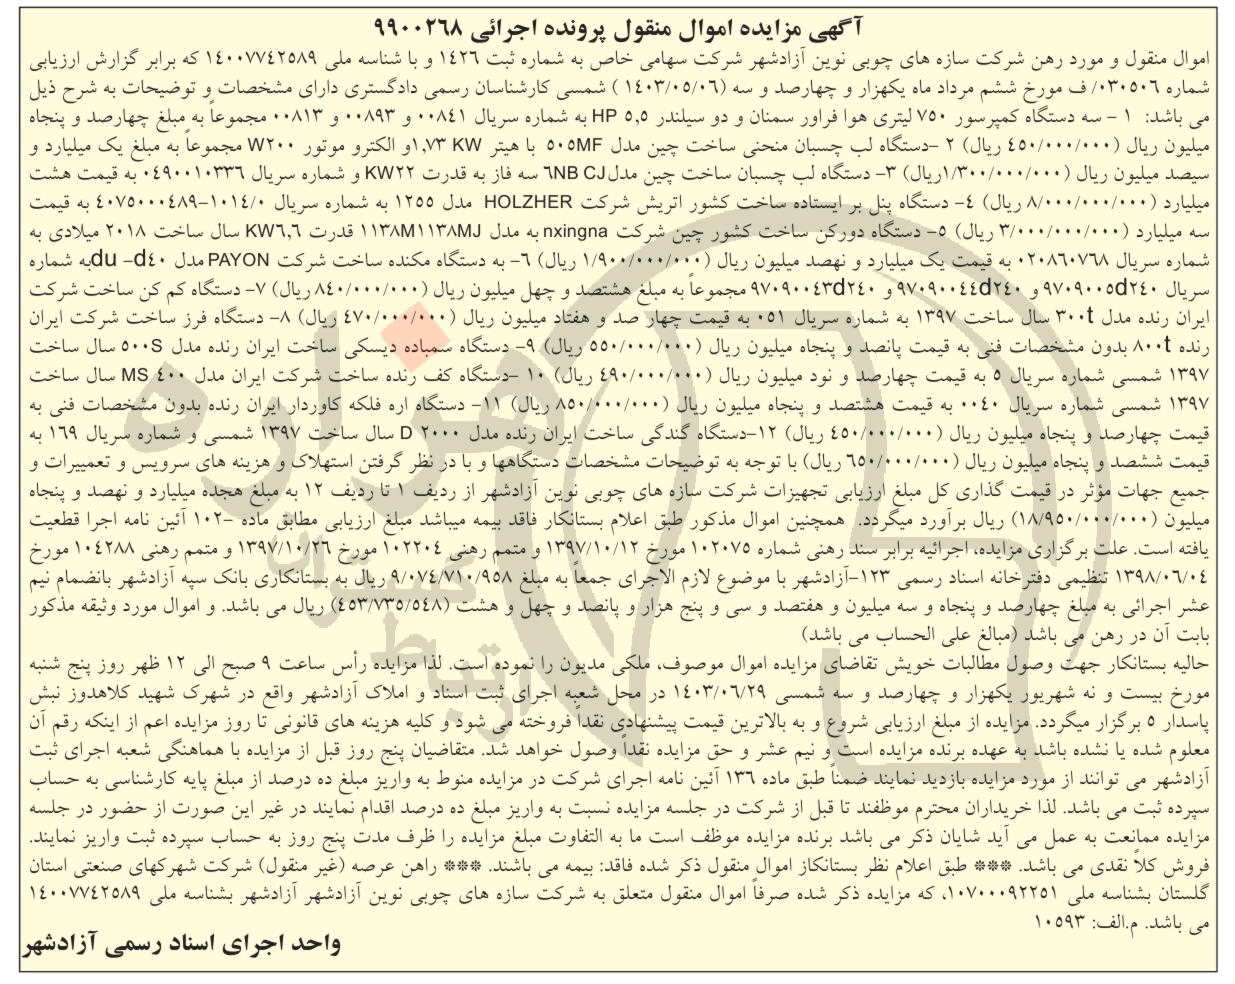 آگهی مزایده اموال منقول پرونده اجرائی ۹۹۰۰۲۶۸
اموال منقول و مورد رهن شرکت سازه های چوبی نوین آزادشهر شرکت سهامی خاص به شماره ثبت ۱۴۲۶ و با شناسه ملی ۱۴۰۰۷۷۴۲۵۸۹ که برابر گزارش ارزیابی
شماره ۰۳۰۵۰۶/ ف مورخ ششم مرداد ماه یکهزار و چهارصد و سه (۱۴۰۳/۰۵/۰۶ ) شمسی کارشناسان رسمی دادگستری دارای مشخصات و توضیحات به شرح ذیل
می باشد: ۱ – سه دستگاه کمپرسور ۷۵۰ لیتری هوا فراور سمنان و دو سیلندر ۵,۵ HP به شماره سریال ۰۰۸۴۱ و ۰۰۸۹۳ و ۰۰۸۱۳ مجموعاً به مبلغ چهارصد و پنجاه
میلیون ریال (۴۵۰/۰۰۰/۰۰۰ ریال) ۲ –دستگاه لب چسبان منحنی ساخت چین مدل ۵۰۵MF با هیتر ۱,۷۳ KW و الکترو موتور W۲۰۰ مجموعاً به مبلغ یک میلیارد و
سیصد میلیون ریال (۱/۳۰۰/۰۰۰/۰۰۰ریال) ۳- دستگاه لب چسبان ساخت چین مدل۶NB CJ سه فاز به قدرت KW۲۲ و شماره سریال ۰۴۹۰۰۱۰۳۳۶ به قیمت هشت
میلیارد (۸/۰۰۰/۰۰۰/۰۰۰ ریال) ۴- دستگاه پنل بر ایستاده ساخت کشور اتریش شرکت HOLZHER مدل ۱۲۵۵ به شماره سریال ۱۰۱۴/۰-۴۰۷۵۰۰۰۴۸۹ به قیمت
سه میلیارد (۳/۰۰۰/۰۰۰/۰۰۰ ریال) ۵- دستگاه دورکن ساخت کشور چین شرکت nxingna به مدل ۱۱۳۸M۱۱۳۸MJ قدرت KW۶,۶ سال ساخت ۲۰۱۸ میلادی به
شماره سریال ۰۲۰۸۶۰۷۶۸ به قیمت یک میلیارد و نهصد میلیون ریال (۱/۹۰۰/۰۰۰/۰۰۰ ریال) ۶- به دستگاه مکنده ساخت شرکت PAYON مدل du -d۴۰به شماره
سریال ۹۷۰۹۰۰۵d۲۴۰ و ۹۷۰۹۰۰۴۴d۲۴۰ و ۹۷۰۹۰۰۴۳d۲۴۰ مجموعاً به مبلغ هشتصد و چهل میلیون ریال (۸۴۰/۰۰۰/۰۰۰ ریال) ۷- دستگاه کم کن ساخت شرکت
ایران رنده مدل ۳۰۰t سال ساخت ۱۳۹۷ به شماره سریال ۰۵۱ به قیمت چهار صد و هفتاد میلیون ریال (۴۷۰/۰۰۰/۰۰۰ ریال) ۸- دستگاه فرز ساخت شرکت ایران
رنده ۸۰۰t بدون مشخصات فنی به قیمت پانصد و پنجاه میلیون ریال (۵۵۰/۰۰۰/۰۰۰ ریال) ۹- دستگاه سمباده دیسکی ساخت ایران رنده مدل ۵۰۰S سال ساخت
۱۳۹۷ شمسی شماره سریال ۵ به قیمت چهارصد و نود میلیون ریال (۴۹۰/۰۰۰/۰۰۰ ریال) ۱۰ -دستگاه کف رنده ساخت شرکت ایران مدل ۴۰۰ MS سال ساخت
۱۳۹۷ شمسی شماره سریال ۰۰۴۰ به قیمت هشتصد و پنجاه میلیون ریال (۸۵۰/۰۰۰/۰۰۰ ریال) ۱۱- دستگاه اره فلکه کاوردار ایران رنده بدون مشخصات فنی به
قیمت چهارصد و پنجاه میلیون ریال (۴۵۰/۰۰۰/۰۰۰ ریال) ۱۲-دستگاه گندگی ساخت ایران رنده مدل ۲۰۰۰ D سال ساخت ۱۳۹۷ شمسی و شماره سریال ۱۶۹ به
قیمت ششصد و پنجاه میلیون ریال (۶۵۰/۰۰۰/۰۰۰ ریال) با توجه به توضیحات مشخصات دستگاهها و با در نظر گرفتن استهلاک و هزینه های سرویس و تعمییرات و
جمیع جهات مؤثر در قیمت گذاری کل مبلغ ارزیابی تجهیزات شرکت سازه های چوبی نوین آزادشهر از ردیف ۱ تا ردیف ۱۲ به مبلغ هجده میلیارد و نهصد و پنجاه
میلیون (۱۸/۹۵۰/۰۰۰/۰۰۰) ریال برآورد میگردد. همچنین اموال مذکور طبق اعلام بستانکار فاقد بیمه میباشد مبلغ ارزیابی مطابق ماده –۱۰۲ آئین نامه اجرا قطعیت
یافته است. علت برگزاری مزایده، اجرائیه برابر سند رهنی شماره ۱۰۲۰۷۵ مورخ ۱۳۹۷/۱۰/۱۲ و متمم رهنی ۱۰۲۲۰۴ مورخ ۱۳۹۷/۱۰/۲۶ و متمم رهنی ۱۰۴۲۸۸ مورخ
۱۳۹۸/۰۶/۰۴ تنظیمی دفترخانه اسناد رسمی ۱۲۳-آزادشهر با موضوع لازم الاجرای جمعاً به مبلغ ۹/۰۷۴/۷۱۰/۹۵۸ ریال به بستانکاری بانک سپه آزادشهر بانضمام نیم
عشر اجرائی به مبلغ چهارصد و پنجاه و سه میلیون و هفتصد و سی و پنج هزار و پانصد و چهل و هشت (۴۵۳/۷۳۵/۵۴۸) ریال می باشد. و اموال مورد وثیقه مذکور
بابت آن در رهن می باشد (مبالغ علی الحساب می باشد)
حالیه بستانکار جهت وصول مطالبات خویش تقاضای مزایده اموال موصوف، ملکی مدیون را نموده است. لذا مزایده رأس ساعت ۹ صبح الی ۱۲ ظهر روز پنج شنبه
مورخ بیست و نه شهریور یکهزار و چهارصد و سه شمسی ۱۴۰۳/۰۶/۲۹ در محل شعبه اجرای ثبت اسناد و املاک آزادشهر واقع در شهرک شهید کلاهدوز نبش
پاسدار ۵ برگزار میگردد. مزایده از مبلغ ارزیابی شروع و به بالاترین قیمت پیشنهادی نقداً فروخته می شود و کلیه هزینه های قانونی تا روز مزایده اعم از اینکه رقم آن
معلوم شده یا نشده باشد به عهده برنده مزایده است و نیم عشر و حق مزایده نقداً وصول خواهد شد. متقاضیان پنج روز قبل از مزایده با هماهنگی شعبه اجرای ثبت
آزادشهر می توانند از مورد مزایده بازدید نمایند ضمناً طبق ماده ۱۳۶ آئین نامه اجرای شرکت در مزایده منوط به واریز مبلغ ده درصد از مبلغ پایه کارشناسی به حساب
سپرده ثبت می باشد. لذا خریداران محترم موظفند تا قبل از شرکت در جلسه مزایده نسبت به واریز مبلغ ده درصد اقدام نمایند در غیر این صورت از حضور در جلسه
مزایده ممانعت به عمل می آید شایان ذکر می باشد برنده مزایده موظف است ما به التفاوت مبلغ مزایده را ظرف مدت پنج روز به حساب سپرده ثبت واریز نمایند.
فروش کلاً نقدی می باشد. *** طبق اعلام نظر بستانکاز اموال منقول ذکر شده فاقد: بیمه می باشند. *** راهن عرصه (غیر منقول) شرکت شهرکهای صنعتی استان
گلستان بشناسه ملی ۱۰۷۰۰۰۹۲۲۵۱، که مزایده ذکر شده صرفاً اموال منقول متعلق به شرکت سازه های چوبی نوین آزادشهر آزادشهر بشناسه ملی ۱۴۰۰۷۷۴۲۵۸۹
می باشد. م.الف: ۱۰۵۹۳
واحد اجرای اسناد رسمی آزادشهر